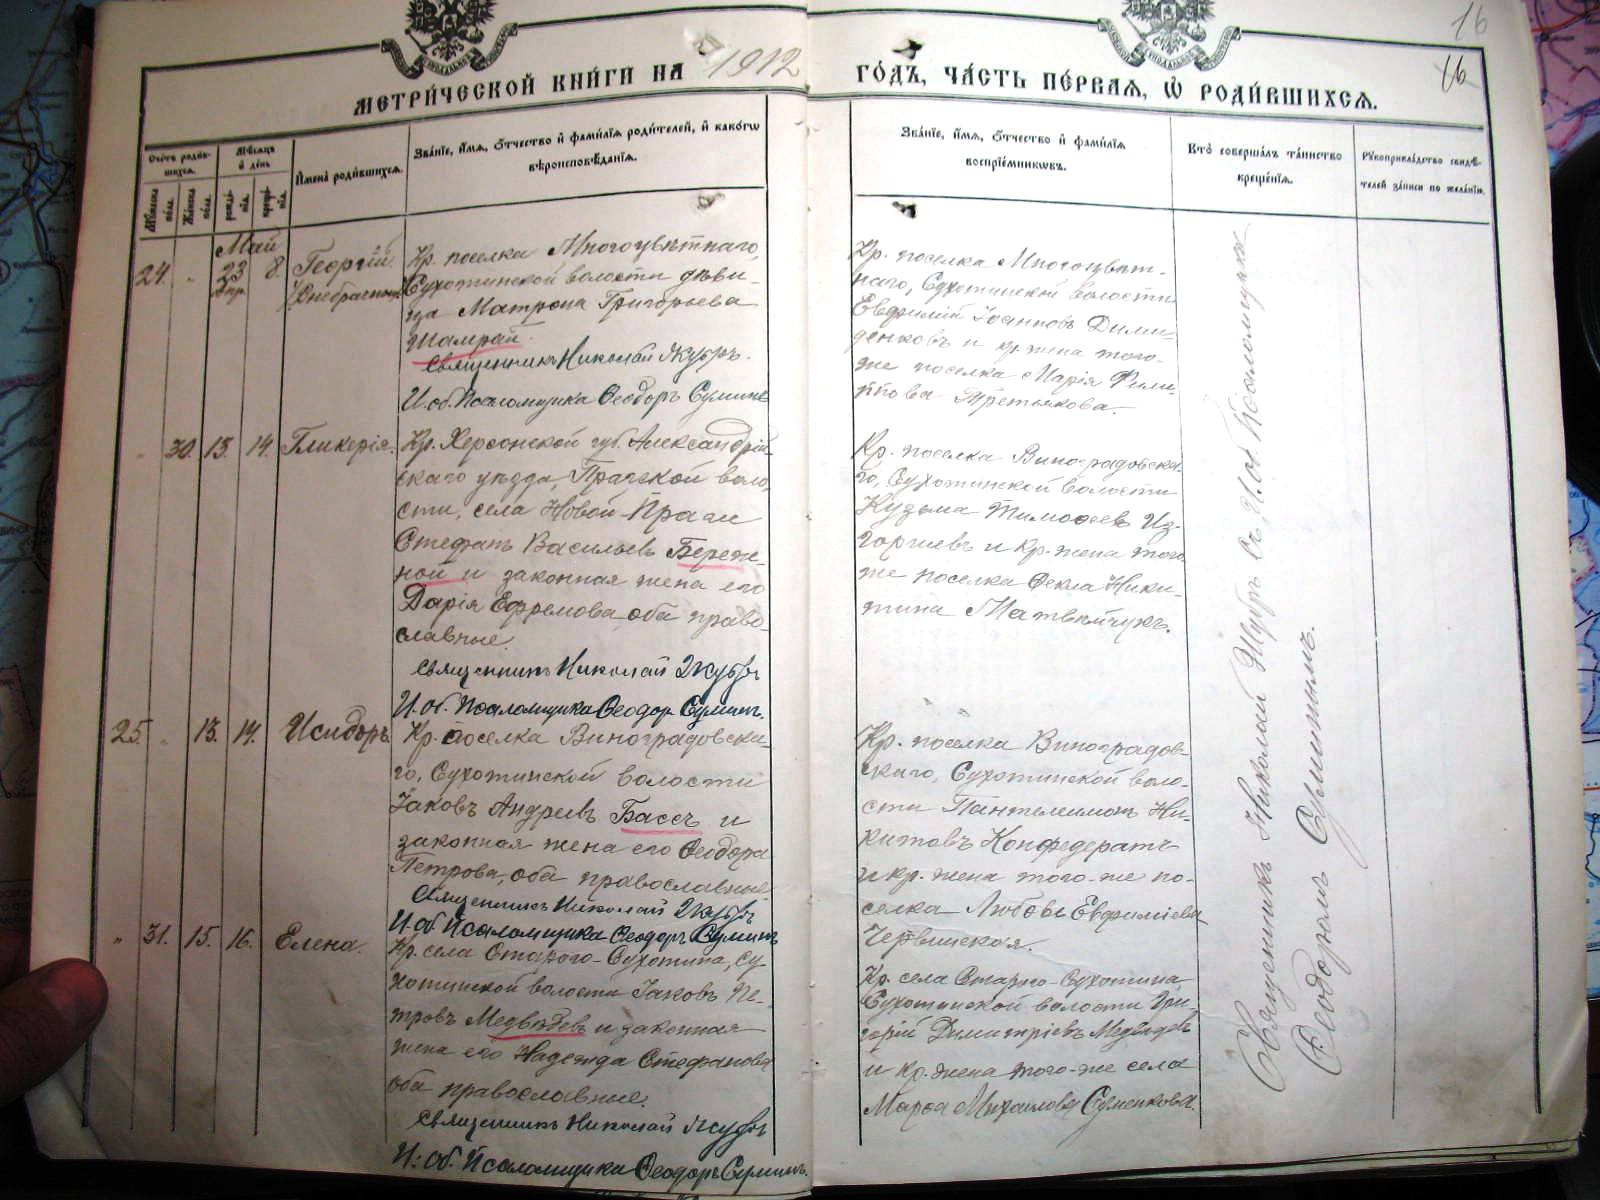 16
16
МЕТРИ́ЧЕСКОЙ КНИ́ГИ НА 1912 ГО́ДЪ, ЧА́СТЬ ПЕ́РВАЯ, Ѡ РОДИ́ВШИХСЯ.
Сче́тъ роди́в-
шихся.
Му́жеска по́ла.
Же́нска по́ла.
Мѣ́сяцъ
и де́нь
рожде́-
нія.
креще́-
нія.
Имена̀ роди́вшихся.
Зва́ніе, и́мя, о́тчество и фами́лія роди́телей, и како́гѡ
вѣроисповѣ́данія.
Зва́ніе, и́мя, о́тчество и фами́лія
воспріе́мникѡвъ.
Кто̀ соверша́лъ та́инство
креще́нія.
Рукоприкла́дство свидѣ́-
телей за́писи по жела́нію.
Май
24. " 23 Апр. 8. Георгій
(Внебрачный)
Кр. поселка Многоцвѣтнаго,
Сухотинской волости дѣви-
ца Матрона Григорьева
Шамрай.
Священникъ Николай Якубъ.
И. об. Псаломщика Ѳеодоръ Суминъ
Кр. поселка Многоцвѣт-
наго, Сухотинской волости
Евфимій Іоанновъ Дими-
денковъ и кр. жена того-
же поселка Марія Фили-
ппова Третьякова.
" 30. 13. 14. Гликерія.
Кр. Херсонской губ. Александрій-
скаго уѣзда, Прагской воло-
сти, села Новой-Праги
Стефанъ Васильевъ Береж-
ной и законная жена его
Дарія Ефремова, оба право-
славные.
Священникъ Николай Якубъ
И. об. Псаломщика Ѳеодоръ Суминъ.
Кр. поселка Виноградовска-
го, Сухотинской волости
Кузьма Тимоѳеевъ Из-
горневъ и кр. жена того
же поселка Ѳекла Ники-
тина Матвѣйчукъ.
25. " 13. 14. Исидоръ
Кр. поселка Виноградовска-
го, Сухотинской волости
Іаковъ Андреевъ Бассъ и
законная жена его Ѳеодора
Петрова, оба православные
Священникъ Николай Якубъ
И. об. Псаломщика Ѳеодоръ Суминъ
Кр. поселка Виноградов-
скаго, Сухотинской воло-
сти Пантелеимонъ Ни-
китовъ Конфедератъ
и кр. жена того-же по-
селка Любовь Евфиміева
Червинская.
" 31. 15. 16. Елена.
Кр. села Старого-Сухотина, Су-
хотинской волости Іаковъ Пе-
тровъ Медвѣдевъ и законная
жена его Надежда Стефанова
оба православные.
Священникъ Николай Якубъ
И. об. Псаломщика Ѳеодоръ Суминъ.
Кр. села Старого-Сухотина,
Сухотинской волости Гри-
горій Димитріевъ Медвѣдевъ
и кр. жена того-же села
Марѳа Михаилова Суменкова.
Священникъ Николай Якубъ съ И. об. Псаломщика
Ѳеодоромъ Суминымъ.